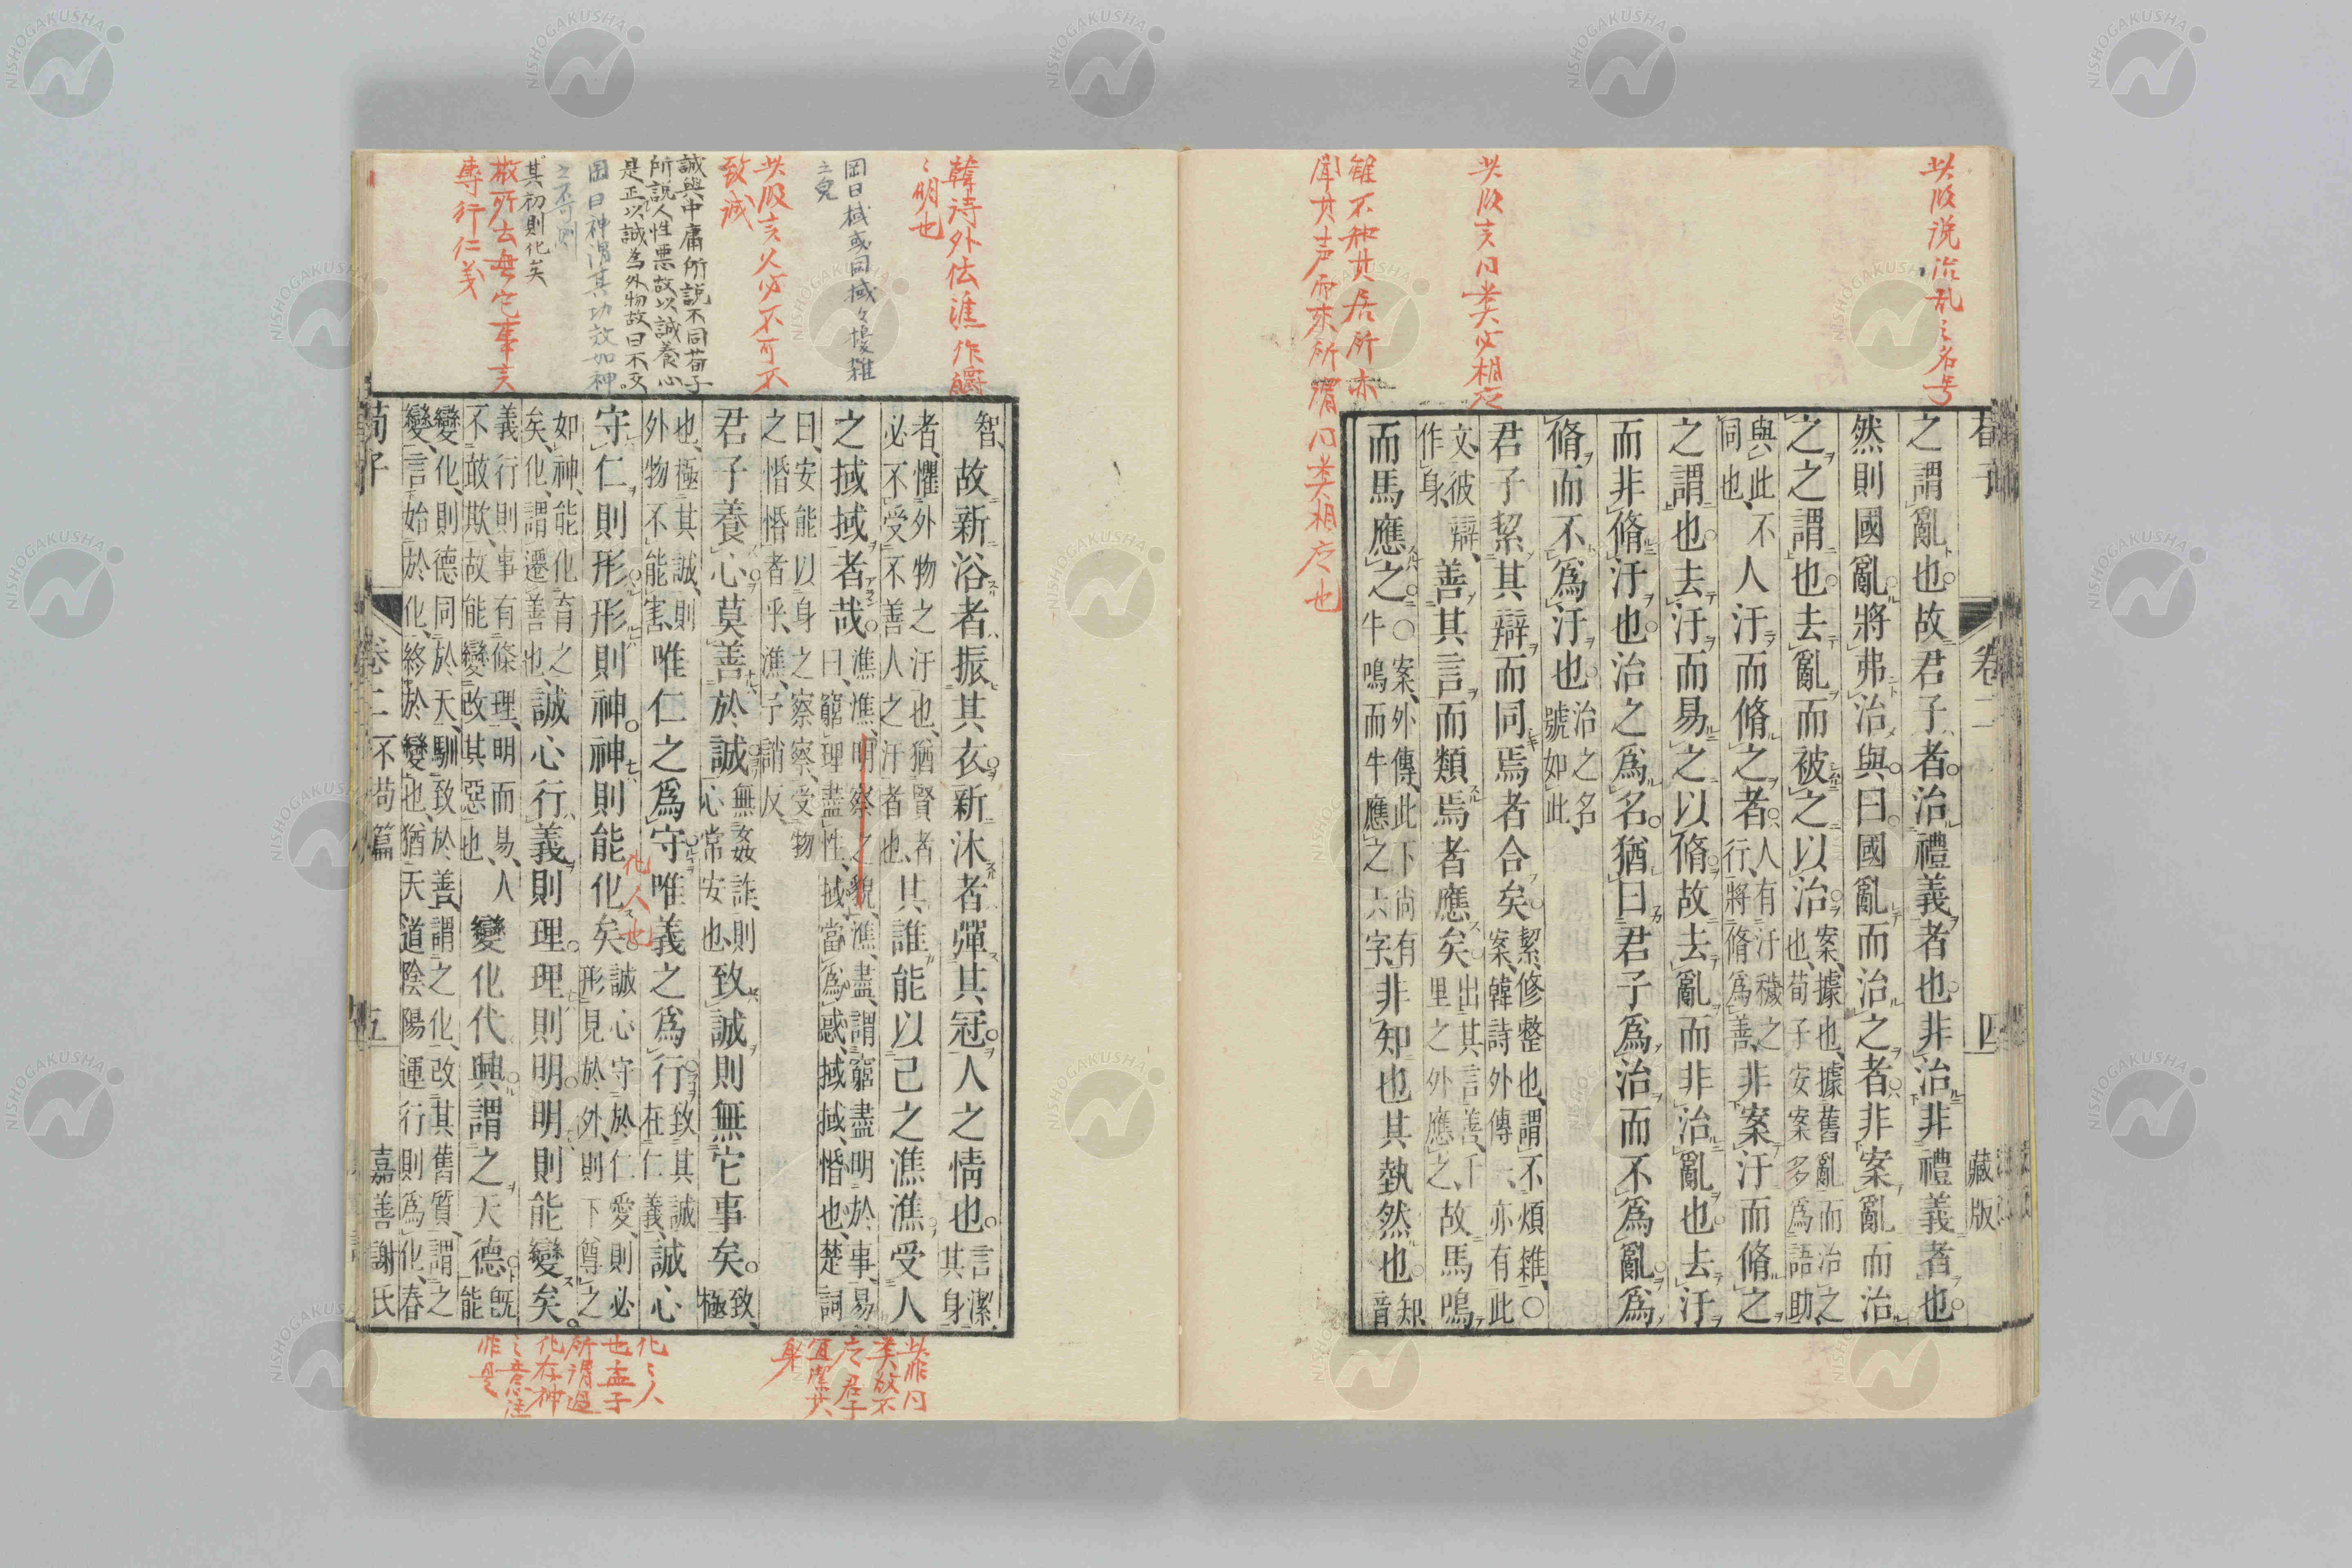 此段说治乱之名号
荀子
卷二
四
藏版
之謂亂也故君子者治禮義者也非治非禮義者也
然則國亂將弗治與曰國亂而治之者非案亂而治
之之謂也去亂而被之以治案據也據舊亂而治之
也荀子安案多爲語助
與此不
同也
人汙而脩之者人有汙穢之
行將脩爲善
非案汙而脩之
之謂也去汙而易之以脩故去亂而非治亂也去汙
而非脩汙也治之爲名猶曰君子爲治而不爲亂爲
脩而不爲汙也治之名
號如此
君子絜其辯而同焉者合矣絜修整也謂不煩雜○
案韓詩外傳一亦有此
文彼辯
作身
善其言而類焉者應矣出其言善千
里之外應之
故馬鳴
而馬應之○案外傳此下尚有
牛鳴而牛應之六字
非知也其埶然也知
音
此段言同类必相应
雖不知其居所亦
闻其声而来所謂同类相应也
智
故新浴者振其衣新沐者彈其冠人之情也言潔
其身
者懼外物之汙也猶賢者
必不受不善人之汙者也
其誰能以己之潐潐受人
之掝掝者哉潐潐明察之貌潐盡謂窮盡明於事易
曰窮理盡性掝當爲惑掝掝惛也楚詞
曰安能以身之察察受物
之惛惛者乎潐子誚反
君子養心莫善於誠無姦詐則
心常安也
致誠則無它事矣致
極
也極其誠則
外物不能害
唯仁之爲守唯義之爲行致其誠
在仁義
誠心
守仁則形形則神神則能化矣誠心守於仁愛則必
形見於外則下尊之
如神能化育之
矣化謂遷善也
誠心行義則理理則明明則能變矣
義行則事有條理明而易人
不敢欺故能變改其惡也
變化代興謂之天德旣
能
變化則德同於天馴致於善謂之化改其舊質謂之
變言始於化終於變也猶天道陰陽運行則爲化春
荀子
卷二
不苟篇
五
嘉善謝氏
韓诗外传潐作皭
々明也
岡曰掝或同域々慢雜
之皃
此段言人必不可不
致诚
誠與中庸所説不同荀子
所説人性悪故以誠養心
是正以誠為外物故曰不文
岡曰神謂其功效如神
之不可測
其初則化矣
故所去無它事言
專行仁義
化人也
此非同
类故不
应君子
宜潔其
身
化々人
也孟子
所谓過
化存神
之意注
非是
NISHOGAKUSHA